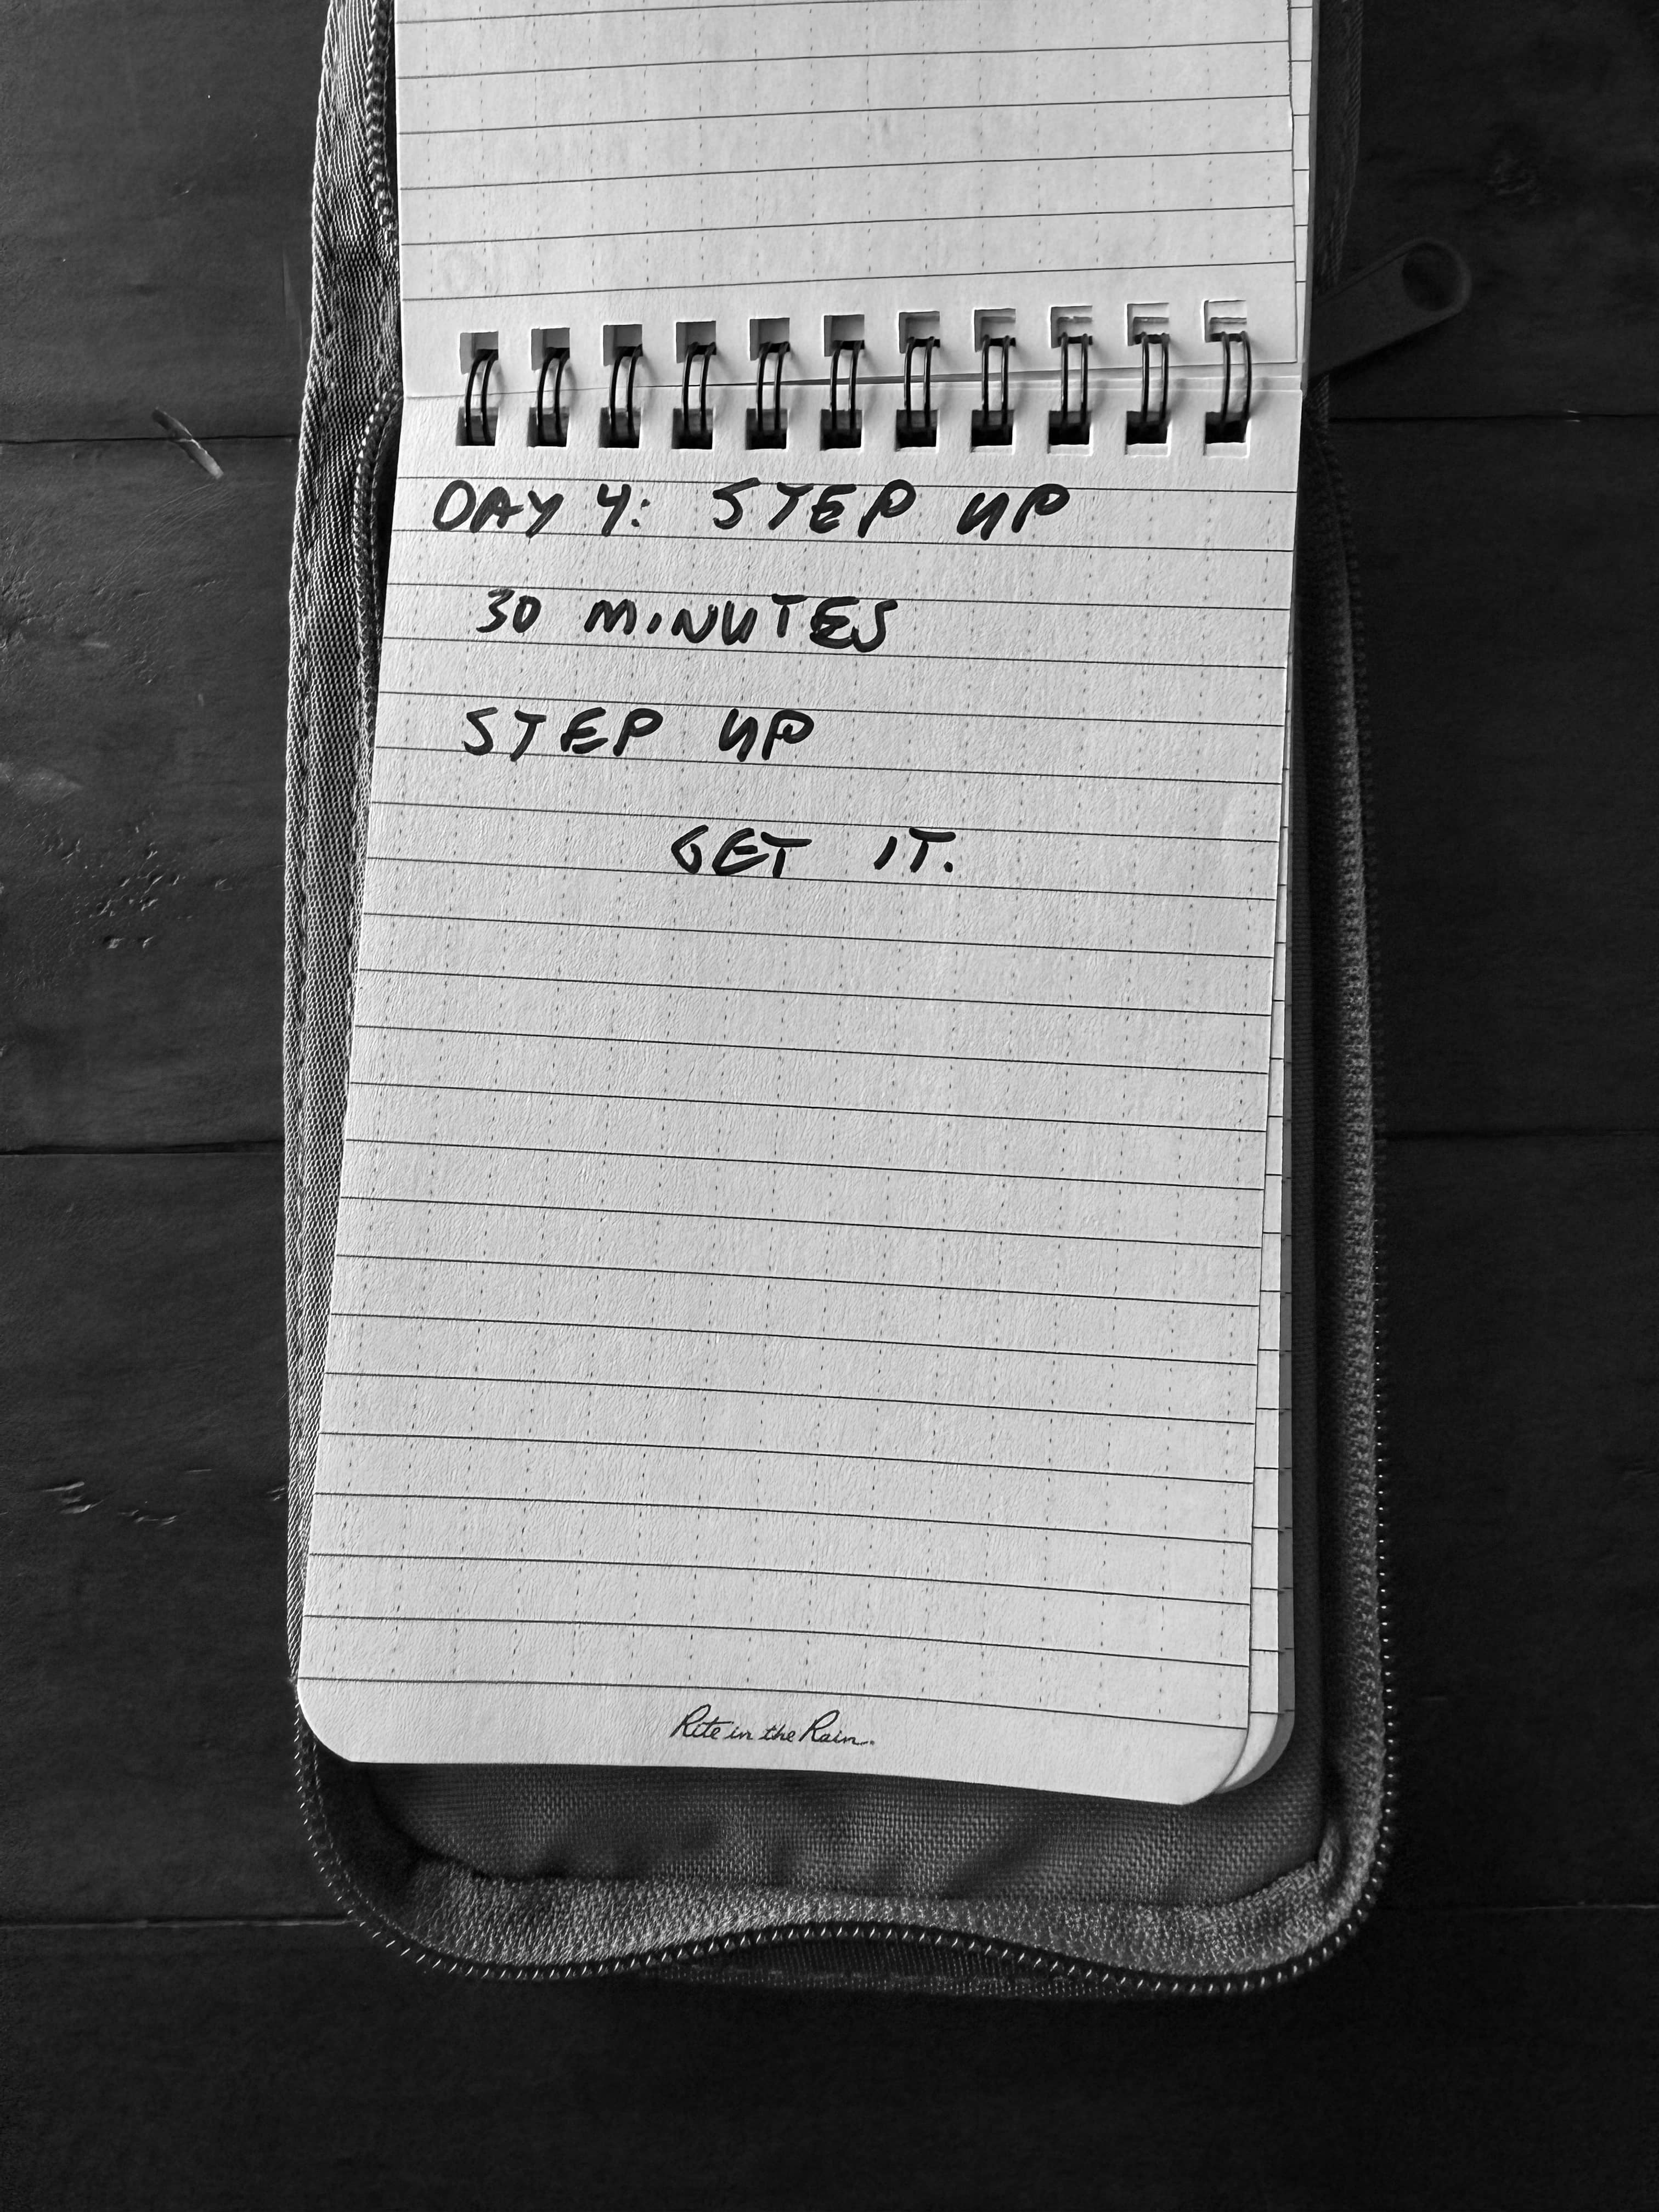 DAY 4: STEP UP
30 MINUTES
STEP UP
GET IT.
Rite in the Rain.